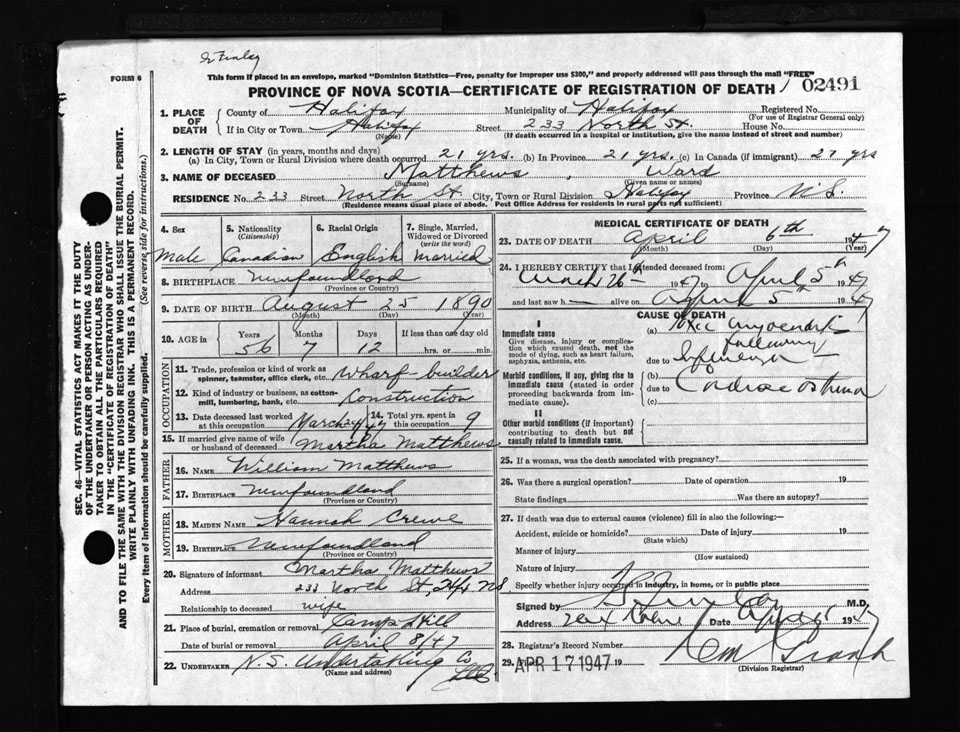 Dr Finlay
FORM 6
This form if placed in an envelope, marked "Dominion Statistics—Free, penalty for improper use $300," and properly addressed will pass through the mail "FREE"
PROVINCE OF NOVA SCOTIA—CERTIFICATE OF REGISTRATION OF DEATH
02491
1. PLACE OF DEATH
County of Halifax Municipality of Halifax Registered No.
(For use of Registrar General only)
If in City or Town Halifax Street 233 North St. House No.
(Name) (If death occurred in a hospital or institution, give the name instead of street and number)
2. LENGTH OF STAY (in years, months and days)
(a) In City, Town or Rural Division where death occurred 21 yrs. (b) In Province 21 yrs. (c) In Canada (if immigrant) 21 yrs
3. NAME OF DECEASED Matthews, Ward
(Surname) (Given name or names)
RESIDENCE No. 233 Street North St. City, Town or Rural Division Halifax Province N.S.
(Residence means usual place of abode. Post Office Address for residents in rural parts not sufficient)
4. Sex
Male
5. Nationality
(Citizenship)
Canadian
6. Racial Origin
English
7. Single, Married, Widowed or Divorced
(write the word)
Married
8. BIRTHPLACE Newfoundland
(Province or Country)
9. DATE OF BIRTH August 25 1890
(Month) (Day) (Year)
10. AGE in
Years Months Days If less than one day old
56 7 12 hrs. or min.
OCCUPATION
11. Trade, profession or kind of work as spinner, teamster, office clerk, etc. Wharf-builder
12. Kind of industry or business, as cotton-mill, lumbering, bank, etc. Construction
13. Date deceased last worked at this occupation March 24/47
14. Total yrs. spent in this occupation 9
15. If married give name of wife or husband of deceased Martha Matthews
FATHER
16. NAME William Matthews
17. BIRTHPLACE Newfoundland
(Province or Country)
MOTHER
18. MAIDEN NAME Hannah Crewe
19. BIRTHPLACE Newfoundland
(Province or Country)
20. Signature of informant Martha Matthews
Address 233 North St, Hfx NS
Relationship to deceased wife
21. Place of burial, cremation or removal Camp Hill
Date of burial or removal April 8/47
22. UNDERTAKER N.S. Undertaking Co
(Name and address)
MEDICAL CERTIFICATE OF DEATH
23. DATE OF DEATH April 6th 1947
(Month) (Day) (Year)
24. I HEREBY CERTIFY that I attended deceased from:
March 26th 1947 to April 5th 1947
and last saw h alive on April 5 1947
CAUSE OF DEATH
I
Immediate cause
Give disease, injury or complication which caused death, not the mode of dying, such as heart failure, asphyxia, asthenia, etc.
(a)
following
due to Influenza
Morbid conditions, if any, giving rise to immediate cause (stated in order proceeding backwards from immediate cause).
(b)
due to Cardiac asthma
(c)
II
Other morbid conditions (if important) contributing to death but not causally related to immediate cause.
25. If a woman, was the death associated with pregnancy?
26. Was there a surgical operation? Date of operation 19
State findings Was there an autopsy?
27. If death was due to external causes (violence) fill in also the following:—
Accident, suicide or homicide? Date of injury 19
(State which)
Manner of injury
(How sustained)
Nature of injury
Specify whether injury occurred in industry, in home, or in public place
Signed by M.D.
Address Date April 1947
28. Registrar's Record Number
29. Filed APR 17 1947 19
(Division Registrar)
SEC. 46—VITAL STATISTICS ACT MAKES IT THE DUTY
OF THE UNDERTAKER OR PERSON ACTING AS UNDER-
TAKER TO OBTAIN ALL THE PARTICULARS REQUIRED
IN THE "CERTIFICATE OF REGISTRATION OF DEATH"
AND TO FILE THE SAME WITH THE DIVISION REGISTRAR WHO SHALL ISSUE THE BURIAL PERMIT.
WRITE PLAINLY WITH UNFADING INK. THIS IS A PERMANENT RECORD.
Every item of information should be carefully supplied. (See reverse side for instructions.)